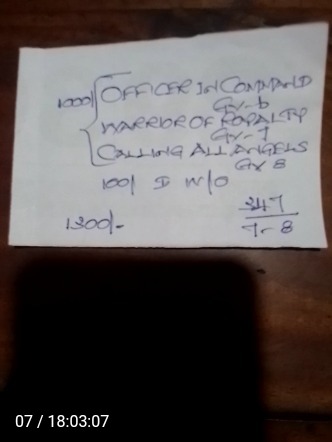 1000/ OFFICER IN COMMAND
Gr-6
WARRIOR OF ROYALTY
Gr-7
CALLING ALL ANGELS
Gr 8
100/ I W/O
1300/-
347
7-8
07 / 18:03:07